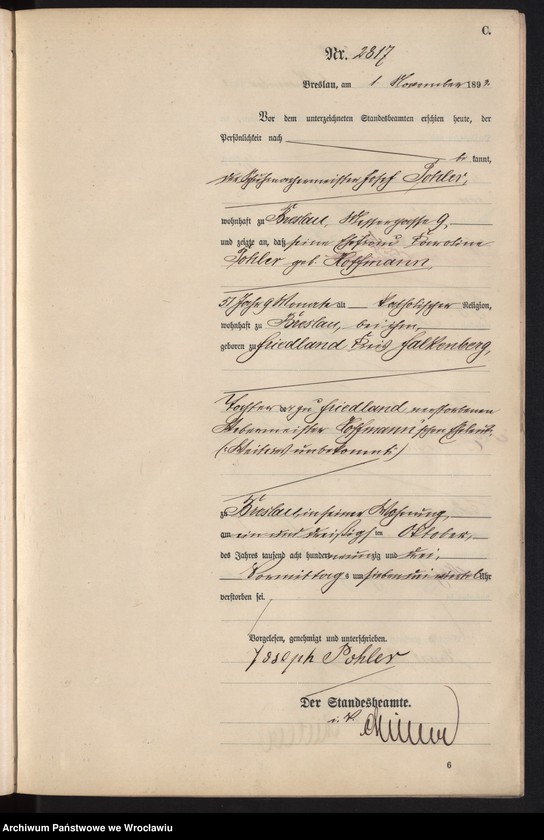 C.
Nr. 2817
Breslau, am 1. November 1893.
Vor dem unterzeichneten Standesbeamten erschien heute, der
Persönlichkeit nach
be kannt,
der Schuhmachermeister Josef Pohler,
wohnhaft zu Breslau, Messergasse 9,
und zeigte an, daß seine Ehefrau Karoline
Pohler geb. Hoffmann,
51 Jahr 9 Monate alt katholischer Religion,
wohnhaft zu Breslau, bei ihm,
geboren zu Friedland Kreis Falkenberg,
Tochter der zu Friedland verstorbenen
Webermeister Hoffmann'schen Eheleute.
(Weiteres unbekannt.)
zu Breslau, in seiner Wohnung,
am ein und dreißigsten Oktober,
des Jahres tausend acht hundert neunzig und drei,
Vormittags um sieben drei viertel Uhr
verstorben sei.
Vorgelesen, genehmigt und unterschrieben.
Joseph Pohler
Der Standesbeamte.
i. V.
6
Archiwum Państwowe we Wrocławiu